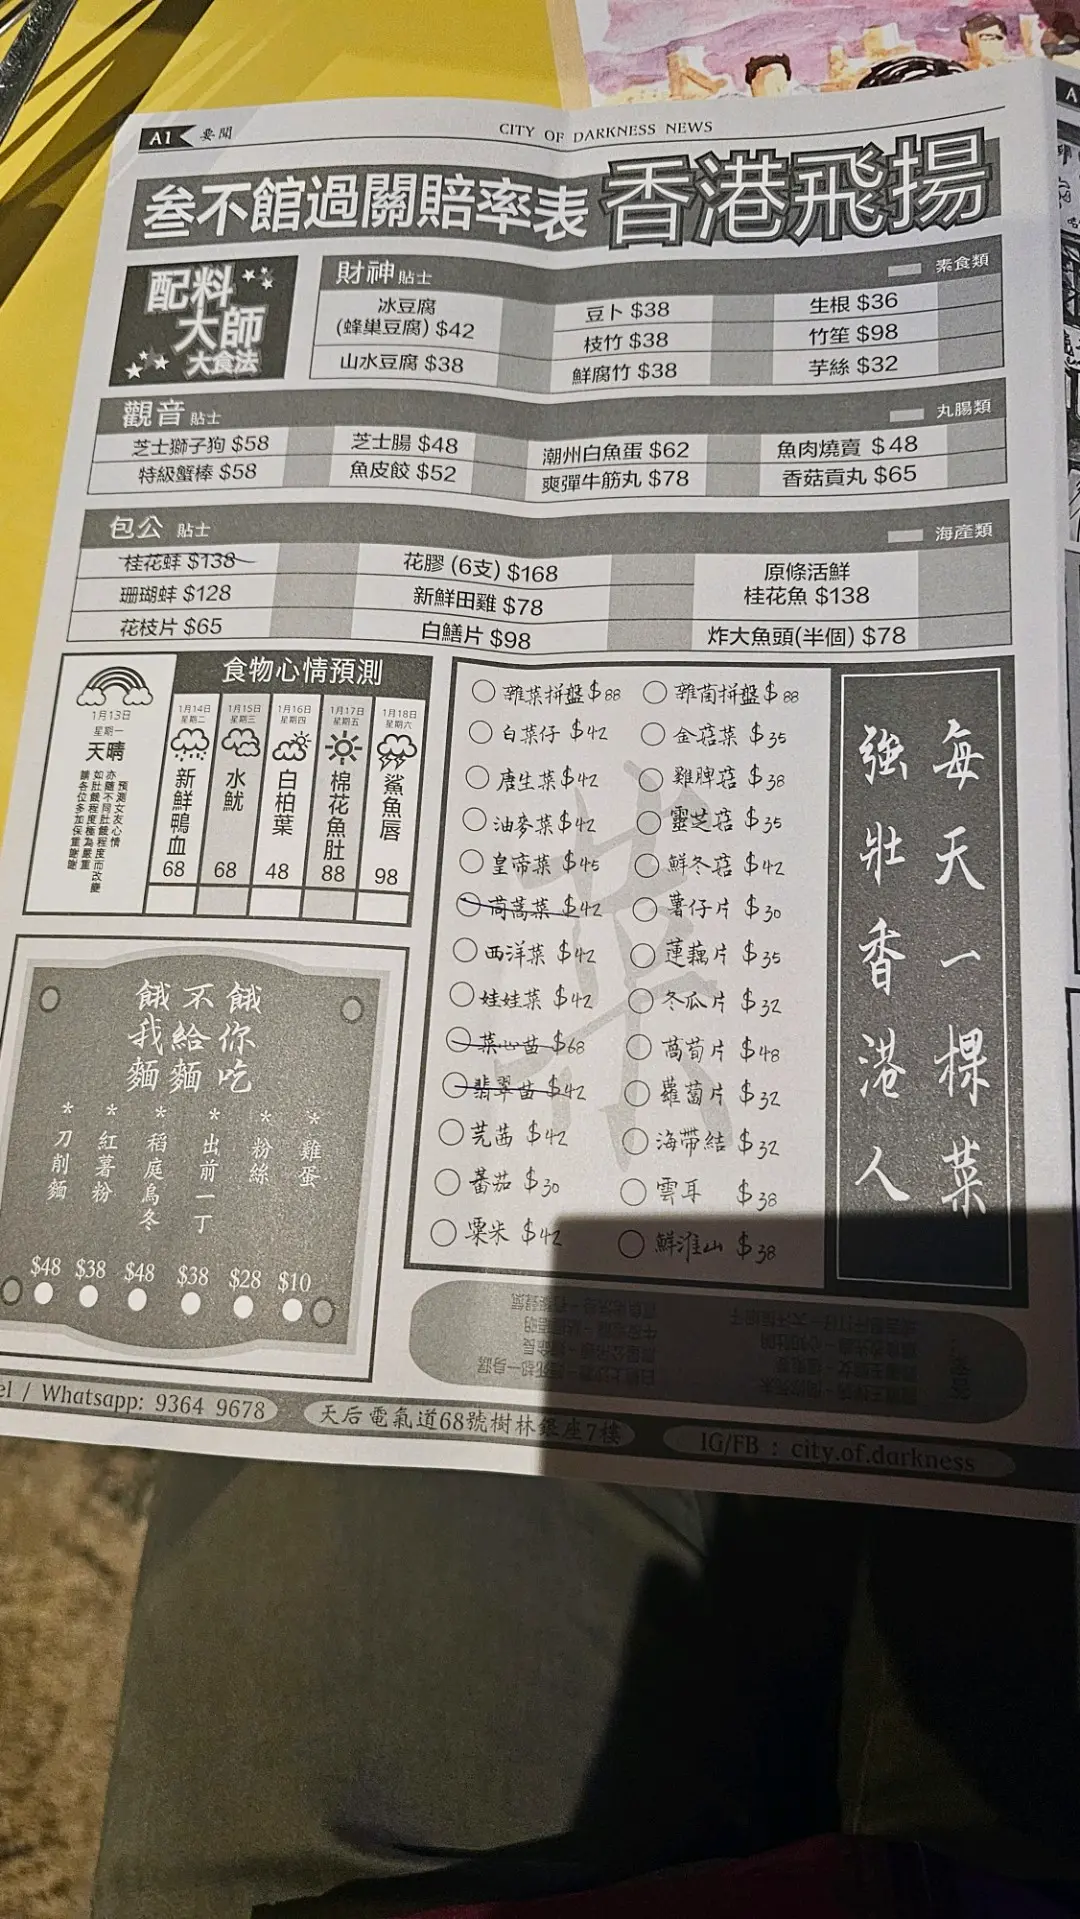 A1 要聞
CITY OF DARKNESS NEWS
叁不館過關賠率表 香港飛揚
配料
大師
大食法
財神 貼士 素食類
冰豆腐
(蜂巢豆腐) $42
山水豆腐 $38
豆卜 $38
枝竹 $38
鮮腐竹 $38
生根 $36
竹笙 $98
芋絲 $32
觀音 貼士 丸腸類
芝士獅子狗 $58 芝士腸 $48 潮州白魚蛋 $62 魚肉燒賣 $48
特級蟹棒 $58 魚皮餃 $52 爽彈牛筋丸 $78 香菇貢丸 $65
包公 貼士 海產類
桂花蚌 $138
珊瑚蚌 $128
花枝片 $65
花膠 (6支) $168
新鮮田雞 $78
白鱔片 $98
原條活鮮
桂花魚 $138
炸大魚頭(半個) $78
1月13日
星期一
天晴
預測女友心情
亦隨不同肚餓程度而改變
如肚餓程度極為嚴重
請各位多加保重謝謝
食物心情預測
1月14日
星期二
新鮮鴨血
68
1月15日
星期三
水魷
68
1月16日
星期四
白柏葉
48
1月17日
星期五
棉花魚肚
88
1月18日
星期六
鯊魚唇
98
餓不餓
我給你
麵麵吃
* 刀削麵
* 紅薯粉
* 稻庭烏冬
* 出前一丁
* 粉絲
* 雞蛋
$48 $38 $48 $38 $28 $10
菜
雜菜拼盤 $88
白菜仔 $42
唐生菜 $42
油麥菜 $42
皇帝菜 $45
茼蒿菜 $42
西洋菜 $42
娃娃菜 $42
菜心苗 $68
翡翠苗 $42
芫茜 $42
蕃茄 $30
粟米 $42
雜菌拼盤 $88
金菇菜 $35
雞脾菇 $38
靈芝菇 $35
鮮冬菇 $42
薯仔片 $30
蓮藕片 $35
冬瓜片 $32
萵荀片 $48
蘿蔔片 $32
海帶結 $32
雲耳 $38
鮮淮山 $38
每天一棵菜
強壯香港人
Whatsapp: 9364 9678
天后電氣道68號樹林銀座7樓
IG/FB : city.of.darkness